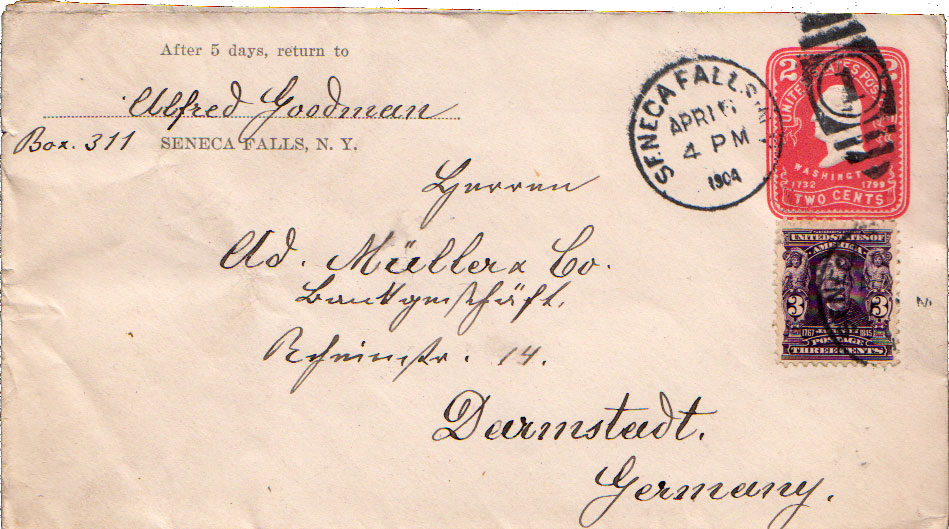 After 5 days, return to
Alfred Goodman
Box. 311 SENECA FALLS, N. Y.
SENECA FALLS, N.Y.
APR 16
4 PM
1904
2 2
UNITED STATES POSTAGE
1
WASHINGTON
1732 1799
TWO CENTS
UNITED STATES OF
AMERICA
3 3
1767 1845
POSTAGE
THREE CENTS
Herren
Ad. Müller & Co.
Bankgeschäft.
Rheinstr. 14.
Darmstadt.
Germany.